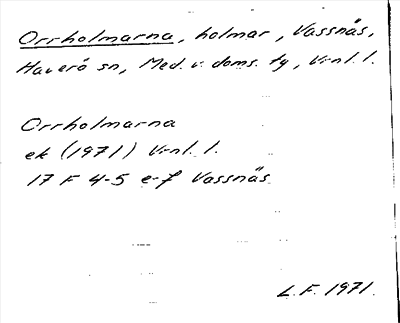 Orrholmarna, holmar, Vassnäs,
Haverö sn, Med. v. doms. tg, Vrnl. l.
Orrholmarna
ek (1971) Vrnl. l.
17 F 4-5 e-f Vassnäs
L.F. 1971.